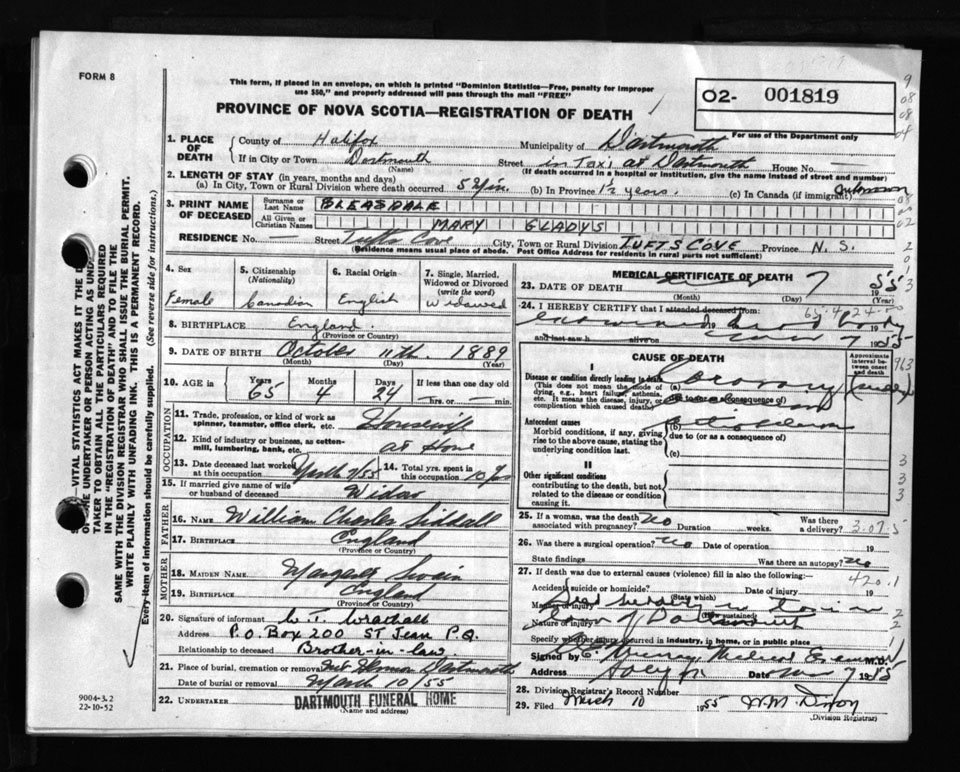 FORM 8
This form, if placed in an envelope, on which is printed "Dominion Statistics—Free, penalty for improper
use $50," and properly addressed will pass through the mail "FREE"
PROVINCE OF NOVA SCOTIA—REGISTRATION OF DEATH
02- 001819
For use of the Department only
1. PLACE OF DEATH
County of Halifax Municipality of Dartmouth
If in City or Town Dartmouth Street in Taxi at Dartmouth House No. —
(Name) (If death occurred in a hospital or institution, give the name instead of street and number)
2. LENGTH OF STAY (in years, months and days)
(a) In City, Town or Rural Division where death occurred 5 Min. (b) In Province 1½ years. (c) In Canada (if immigrant)
3. PRINT NAME OF DECEASED
Surname or Last Name BLEASDALE
All Given or Christian Names MARY GLADYS
RESIDENCE No. — Street Tufts Cove City, Town or Rural Division TUFTS COVE Province N. S.
(Residence means usual place of abode. Post Office Address for residents in rural parts not sufficient)
4. Sex Female
5. Citizenship (Nationality) Canadian
6. Racial Origin English
7. Single, Married, Widowed or Divorced (write the word) Widowed
8. BIRTHPLACE England.
(Province or Country)
9. DATE OF BIRTH October 11th. 1889
(Month) (Day) (Year)
10. AGE in Years 65 Months 4 Days 24 If less than one day old —hrs. or —min.
OCCUPATION
11. Trade, profession, or kind of work as spinner, teamster, office clerk, etc. Housewife
12. Kind of industry or business, as cotton-mill, lumbering, bank, etc. at Home
13. Date deceased last worked at this occupation March 7/55 14. Total yrs. spent in this occupation 10 yrs
15. If married give name of wife or husband of deceased Widow
FATHER
16. NAME William Charles Siddall
17. BIRTHPLACE England
(Province or Country)
MOTHER
18. MAIDEN NAME Margaret Swain
19. BIRTHPLACE England
(Province or Country)
20. Signature of informant W. T. Wrathall
Address P.O. Box 200 ST Jean P.Q.
Relationship to deceased Brother-in-law.
21. Place of burial, cremation or removal Mt Hermon Dartmouth
Date of burial or removal March 10/55
22. UNDERTAKER DARTMOUTH FUNERAL HOME
(Name and address)
MEDICAL CERTIFICATE OF DEATH
23. DATE OF DEATH 7 1955
(Month) (Day) (Year)
65·4·24
24. I HEREBY CERTIFY that I attended deceased from:
19 19
and last saw h alive on 7 1955
CAUSE OF DEATH
Approximate interval between onset and death
I
Disease or condition directly leading to death
(This does not mean the mode of dying, e.g., heart failure, asthenia, etc. It means the disease, injury, or complication which caused death)
(a) Coronary
due to (or as a consequence of)
Antecedent causes
Morbid conditions, if any, giving rise to the above cause, stating the underlying condition last.
(b)
due to (or as a consequence of)
(c)
II
Other significant conditions
contributing to the death, but not related to the disease or condition causing it.
25. If a woman, was the death associated with pregnancy? No Duration weeks. Was there a delivery?
3·07·5
26. Was there a surgical operation? no Date of operation 19
State findings Was there an autopsy? no
27. If death was due to external causes (violence) fill in also the following:—
420.1
Accident, suicide or homicide? Date of injury 19
(State which)
Manner of injury
(How sustained)
Nature of injury
Specify whether injury occurred in industry, in home, or in public place
Signed by Murray M.D.
Address Halifax Date Mar 7 1955
28. Division Registrar's Record Number
29. Filed March 10 1955 W.M. Dixon
(Division Registrar)
VITAL STATISTICS ACT MAKES IT THE
OF THE UNDERTAKER OR PERSON ACTING AS UNDER-
TAKER TO OBTAIN ALL THE PARTICULARS REQUIRED
IN THE "REGISTRATION OF DEATH" AND TO FILE THE
SAME WITH THE DIVISION REGISTRAR WHO SHALL ISSUE THE BURIAL PERMIT.
WRITE PLAINLY WITH UNFADING INK. THIS IS A PERMANENT RECORD.
Every item of information should be carefully supplied. (See reverse side for instructions.)
9004-3.2
22-10-52